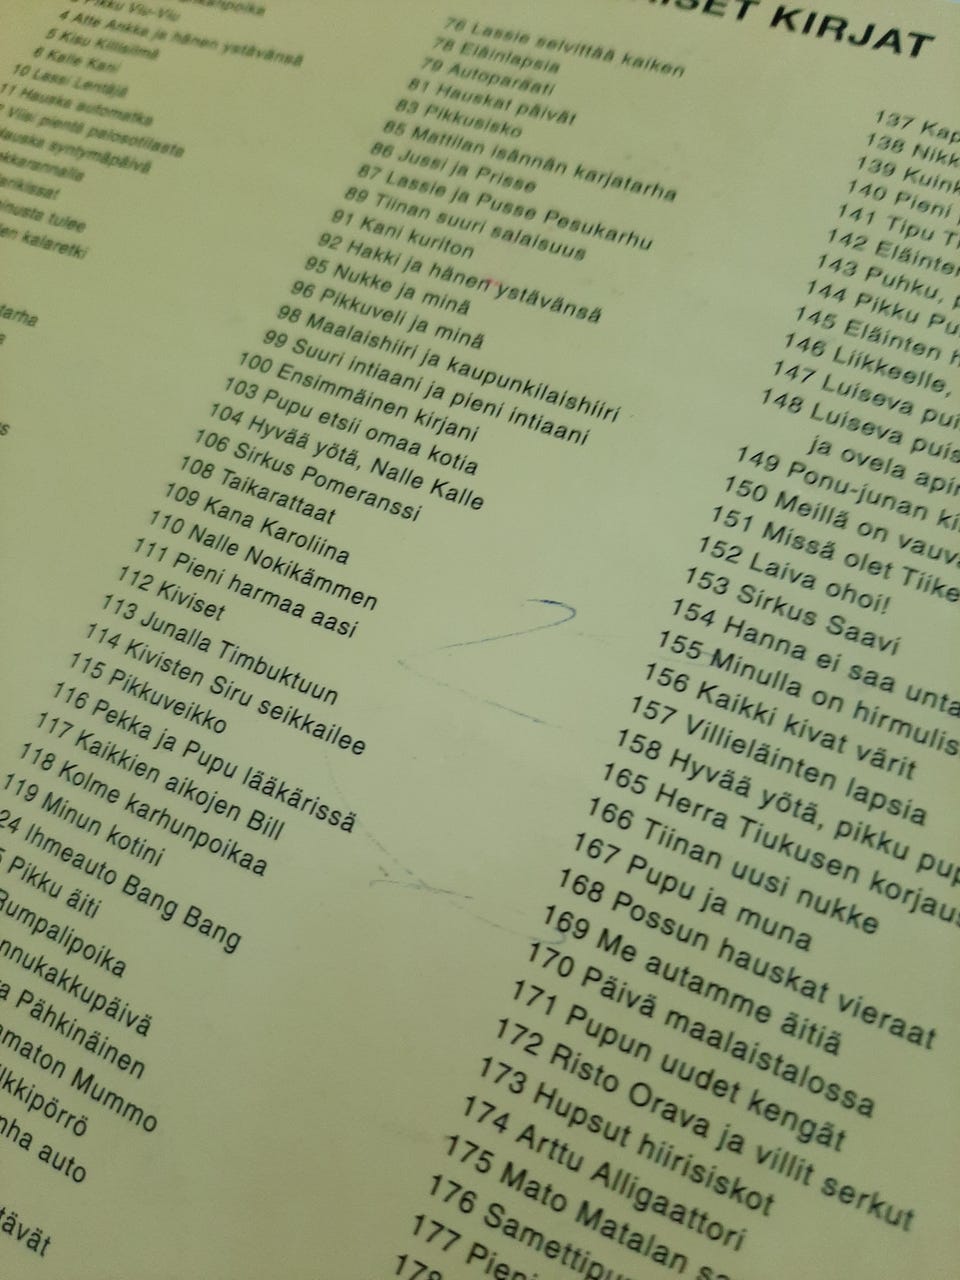 KIRJAT
Pikku Viu-Viu
4 Atte Ankka ja hänen ystävänsä
5 Kisu Killisilmä
6 Kalle Kani
10 Lassi Lentäjä
11 Hauska automatka
Viisi pientä palosotilasta
syntymäpäivä
tulee
kalaretki
76 Lassie selvittää kaiken
78 Eläinlapsia
79 Autoparaati
81 Hauskat päivät
83 Pikkusisko
85 Mattilan isännän karjatarha
86 Jussi ja Prisse
87 Lassie ja Pusse Pesukarhu
89 Tiinan suuri salaisuus
91 Kani kuriton
92 Hakki ja hänen ystävänsä
95 Nukke ja minä
96 Pikkuveli ja minä
98 Maalaishiiri ja kaupunkilaishiiri
99 Suuri intiaani ja pieni intiaani
100 Ensimmäinen kirjani
103 Pupu etsii omaa kotia
104 Hyvää yötä, Nalle Kalle
106 Sirkus Pomeranssi
108 Taikarattaat
109 Kana Karoliina
110 Nalle Nokikämmen
111 Pieni harmaa aasi
112 Kiviset
113 Junalla Timbuktuun
114 Kivisten Siru seikkailee
115 Pikkuveikko
116 Pekka ja Pupu lääkärissä
117 Kaikkien aikojen Bill
118 Kolme karhunpoikaa
119 Minun kotini
24 Ihmeauto Bang Bang
5 Pikku äiti
Rumpalipoika
nnukakkupäivä
Pähkinäinen
maton Mummo
lkkipörrö
nha auto
tävät
137 Kap
138 Nikk
139 Kuink
140 Pieni
141 Tipu T
142 Eläinte
143 Puhku, p
144 Pikku Pu
145 Eläinten h
146 Liikkeelle,
147 Luiseva pui
148 Luiseva puis
ja ovela apin
149 Ponu-junan ki
150 Meillä on vauva
151 Missä olet Tiike
152 Laiva ohoi!
153 Sirkus Saavi
154 Hanna ei saa unta
155 Minulla on hirmulis
156 Kaikki kivat värit
157 Villieläinten lapsia
158 Hyvää yötä, pikku pup
165 Herra Tiukusen korjaus
166 Tiinan uusi nukke
167 Pupu ja muna
168 Possun hauskat vieraat
169 Me autamme äitiä
170 Päivä maalaistalossa
171 Pupun uudet kengät
172 Risto Orava ja villit serkut
173 Hupsut hiirisiskot
174 Arttu Alligaattori
175 Mato Matalan sa
176 Samettipu
177 Pieni
178